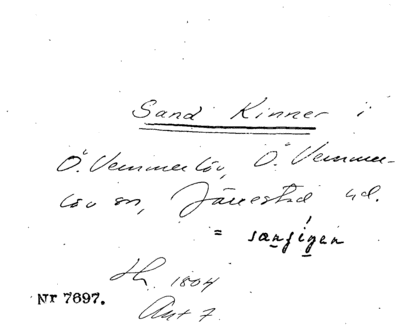 Sand Kinner i
Ö. Vemmerlöv, Ö. Vemmer-
löv sn, Järrestad hd.
= sanʃinen
Lh. 1804
Ant 7.
Nr 7697.